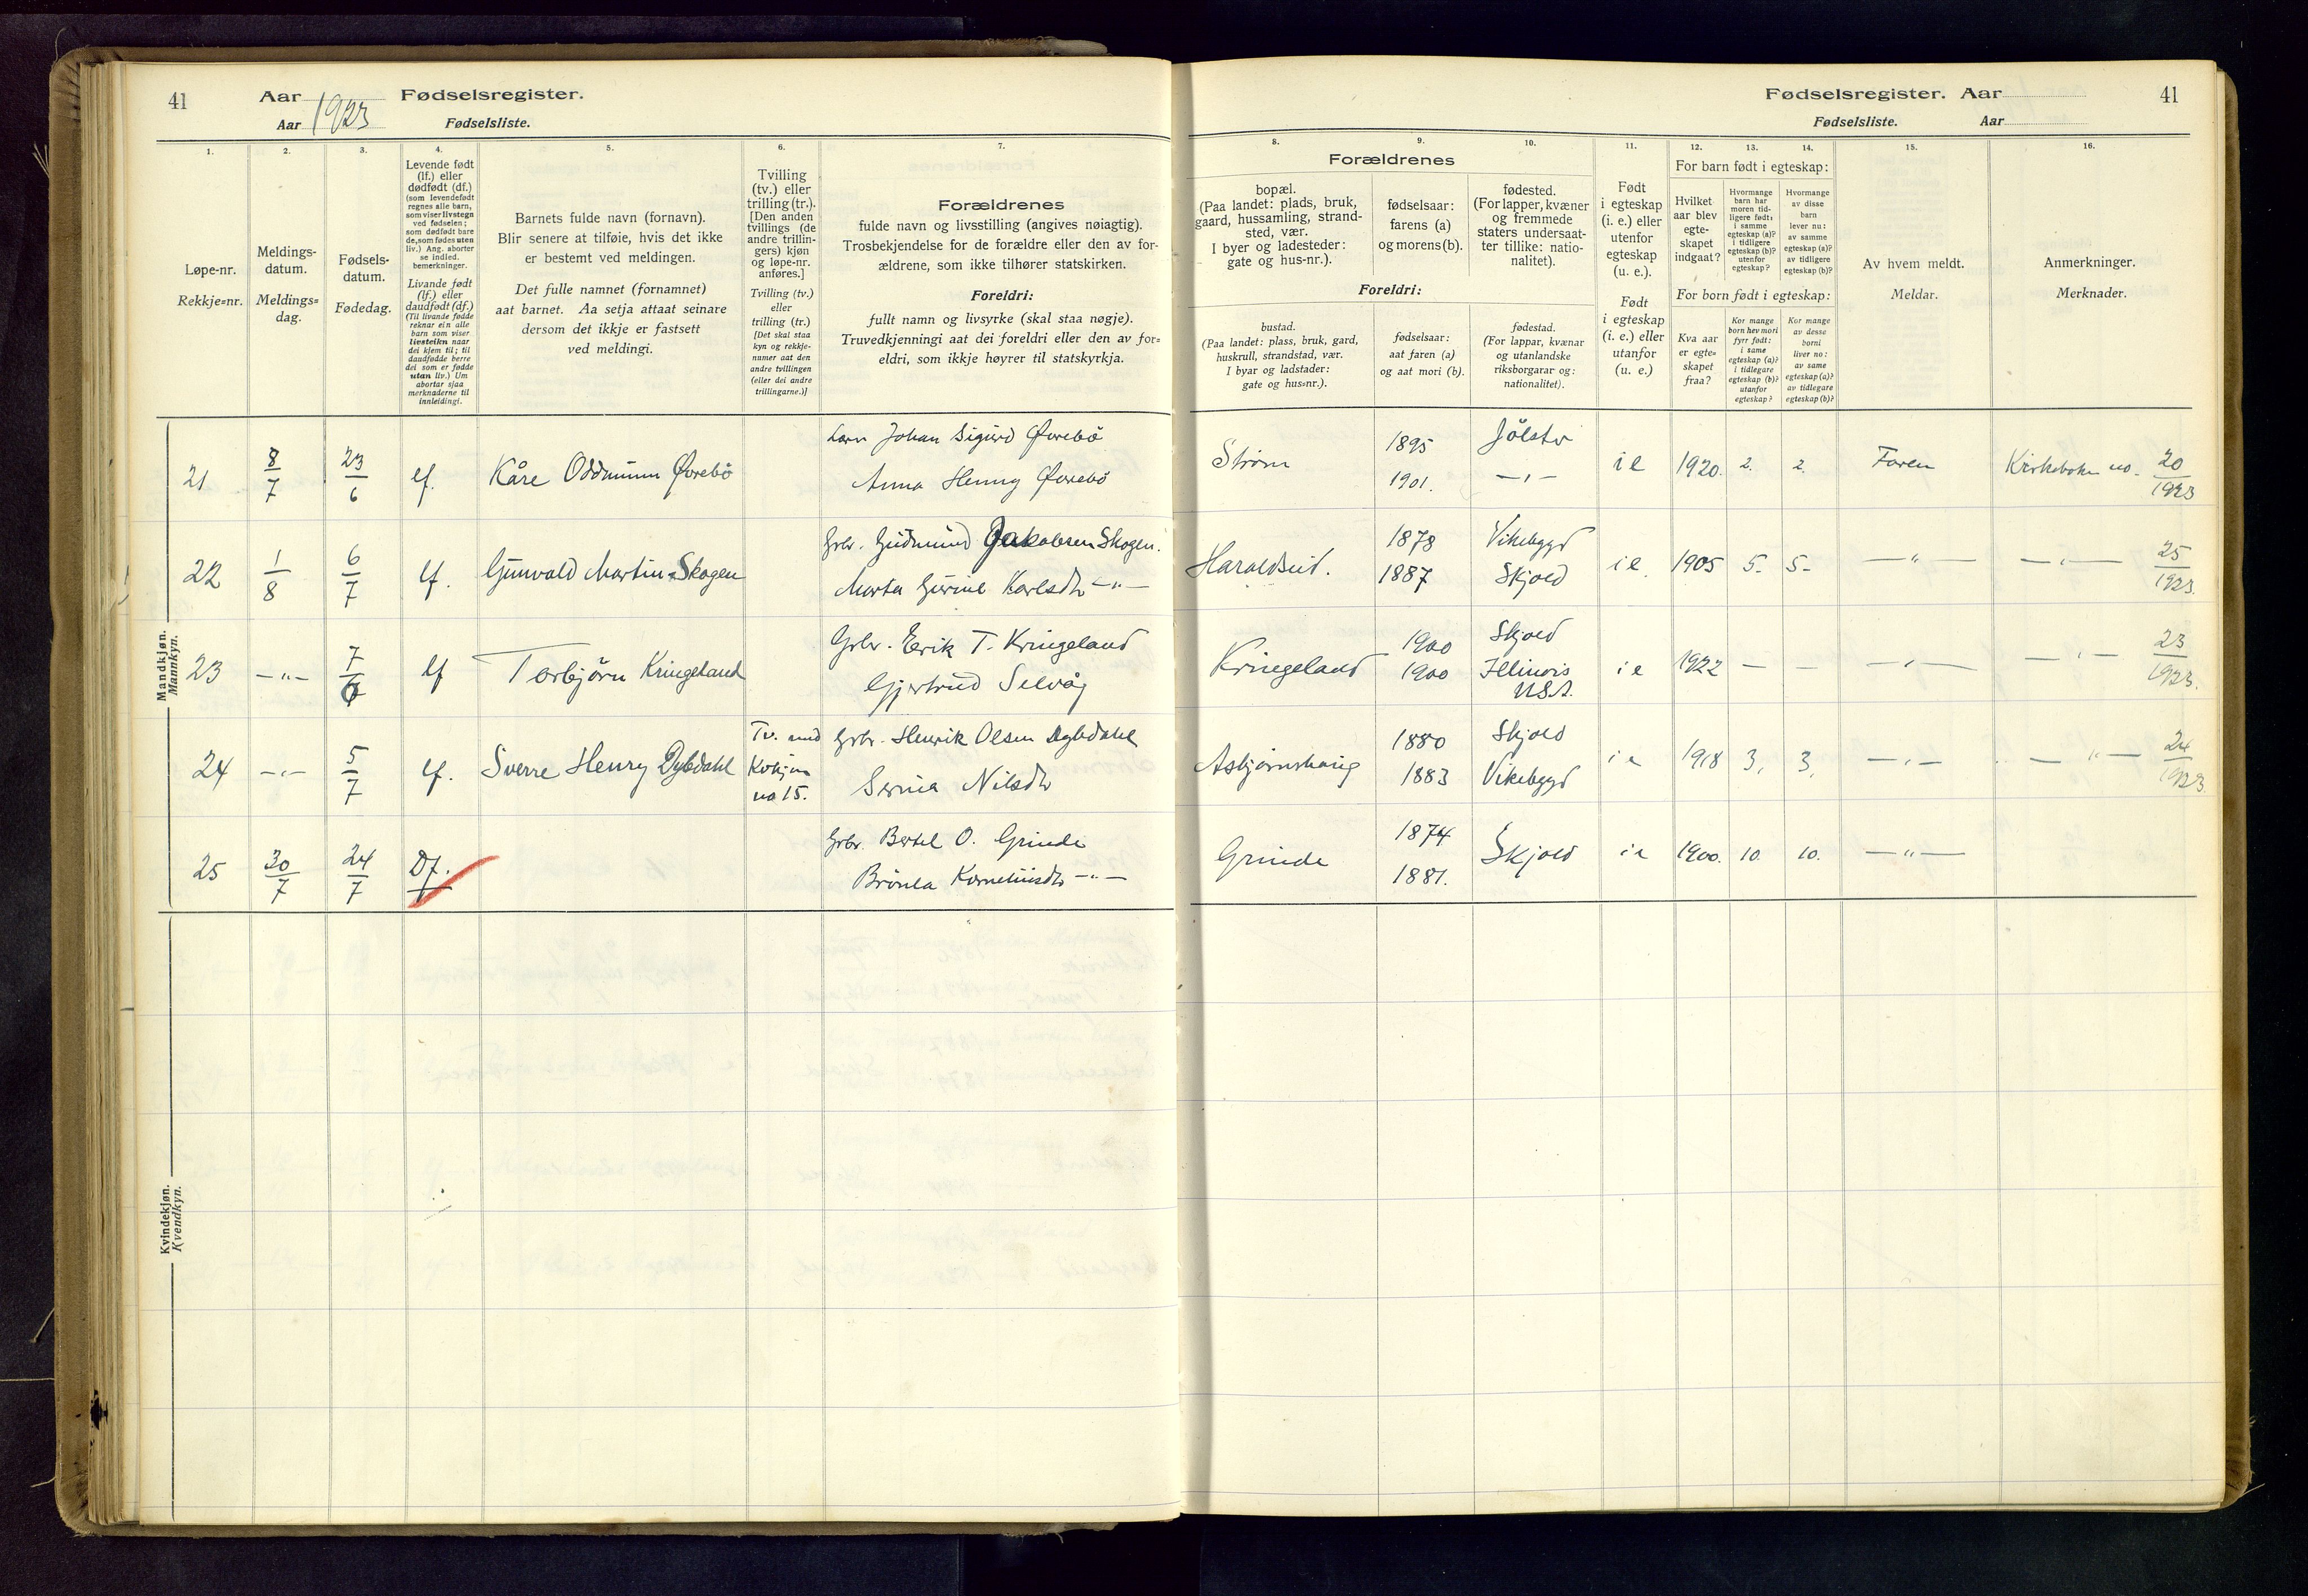 41
Aar
Fødselsregister.
Aar 1923
Fødselsliste.
Fødselsregister. Aar
41
Fødselsliste. Aar
1.
Løpe-nr.
Rekkje=nr.
2.
Meldings-
datum.
Meldings=
dag.
3.
Fødsels-
datum.
Fødedag.
4.
Levende født
(lf.) eller
dødfødt (df.)
(som levendefødt
regnes alle barn,
som viser livstegn
ved fødselen;
som dødfødt bare
de, som fødes uten
liv.) Ang. aborter
se indled.
bemerkninger.
Livande født
(lf.) eller
daudfødt (df.)
(Til livande fødde
reknar ein alle
barn som viser
livsteikn naar
dei kjem til; til
daudfødde berre
dei som er fødde
utan liv.) Um
abortar sjaa
merknaderne til
innleidingi.
5.
Barnets fulde navn (fornavn).
Blir senere at tilføie, hvis det ikke
er bestemt ved meldingen.
Det fulle namnet (fornamnet)
aat barnet. Aa setja attaat seinare
dersom det ikkje er fastsett
ved meldingi.
6.
Tvilling
(tv.) eller
trilling (tr.).
[Den anden
tvillings (de
andre trillin-
gers) kjøn
og løpe-nr.
anføres.]
Tvilling (tv.)
eller
trilling (tr.)
[Det skal staa
kyn og rekkje-
numer aat den
andre tvillingen
(eller dei andre
trillingarne.)]
7.
Forældrenes
fulde navn og livsstilling (angives nøiagtig).
Trosbekjendelse for de forældre eller den av for-
ældrene, som ikke tilhører statskirken.
Foreldri:
fullt namn og livsyrke (skal staa nøgje).
Truvedkjenningi aat dei foreldri eller den av for=
eldri, som ikkje høyrer til statskyrkja.
8.
9.
10.
Forældrenes
bopæl.
(Paa landet: plads, bruk,
gaard, hussamling, strand-
sted, vær.
I byer og ladesteder:
gate og hus-nr.).
fødselsaar:
farens (a)
og morens (b).
fødested.
(For lapper, kvæner
og fremmede
staters undersaat-
ter tillike: natio-
nalitet).
Foreldri:
bustad.
(Paa landet: plass, bruk, gard,
huskrull, strandstad, vær.
I byar og ladstader:
gate og hus=nr.).
fødselsaar:
aat faren (a)
og aat mori (b).
fødestad.
(For lappar, kvænar
og utanlandske
riksborgarar og:
nationalitet).
11.
Født
i egteskap
(i. e.) eller
utenfor
egteskap
(u. e.).
Født
i egteskap
(i. e.) eller
utanfor
(u. e.)
12.
13.
14.
For barn født i egteskap:
Hvilket
aar blev
egte-
skapet
indgaat?
Hvormange
barn har
moren tid-
ligere født:
i samme
egteskap (a)?
i tidligere
egteskap (b)?
utenfor
egteskap?
Hvormange
av disse
barn
lever nu:
av samme
egteskap (a)?
av tidligere
egteskap (b)?
For born født i egteskap:
Kva aar
er egte=
skapet
fraa?
Kor mange
born hev mori
fyrr født:
i same
egteskap (a)?
i tidlegare
egteskap (b)?
utanfor
egteskap?
Kor mange
av desse
borni
liver no:
av same
egteskap (a)?
av tidlegare
egteskap (b)?
15.
Av hvem meldt.
Meldar.
16.
Anmerkninger.
Merknader.
Mandkjøn.
Mannkyn.
21 8/7 23/6 lf. Kåre Oddmunn Øvrebö
Johan Sigurd Øvrebö
Anna Henny Øvrebö
Strøm 1895 Jölster
1901. —"—
i e 1920. 2. 2. Faren Kirkeboken no. 20/1923
22 1/8 6/7 lf. Gunvald Martin Skogen
Grbr. Gudmund Jakobsen Skogen.
Marta Gurine Karlsdtr —"—
Haraldseid. 1878 Vikebygd
1887 Skjold
i e. 1905 5. 5. —"— —"— 25/1923.
23 —"— 7/7 lf Torbjörn Kringeland
Grbr. Erik T. Kringeland
Gjertrud Selvåg
Kringeland 1900 Skjold
1900 Illinois
U.S.A.
i e 1922 — — —"— —"— 23/1923.
24 —"— 5/7 lf. Sverre Henry Dybdahl
Tv. med
Kvkjøn
no 15.
Grbr. Henrik Olsen Dybdahl
Serina Nilsdtr
Asbjørnshaug 1880 Skjold
1883 Vikebygd
i e 1918 3, 3, —"— —"— 24/1923
25 30/7 24/7 Df.
Grbr. Bertel O. Grinde
Korneliusdtr —"—
Grinde 1874
1881.
Skjold
i e 1900. 10. 10. —"—
Kvindekjøn.
Kvendkyn.